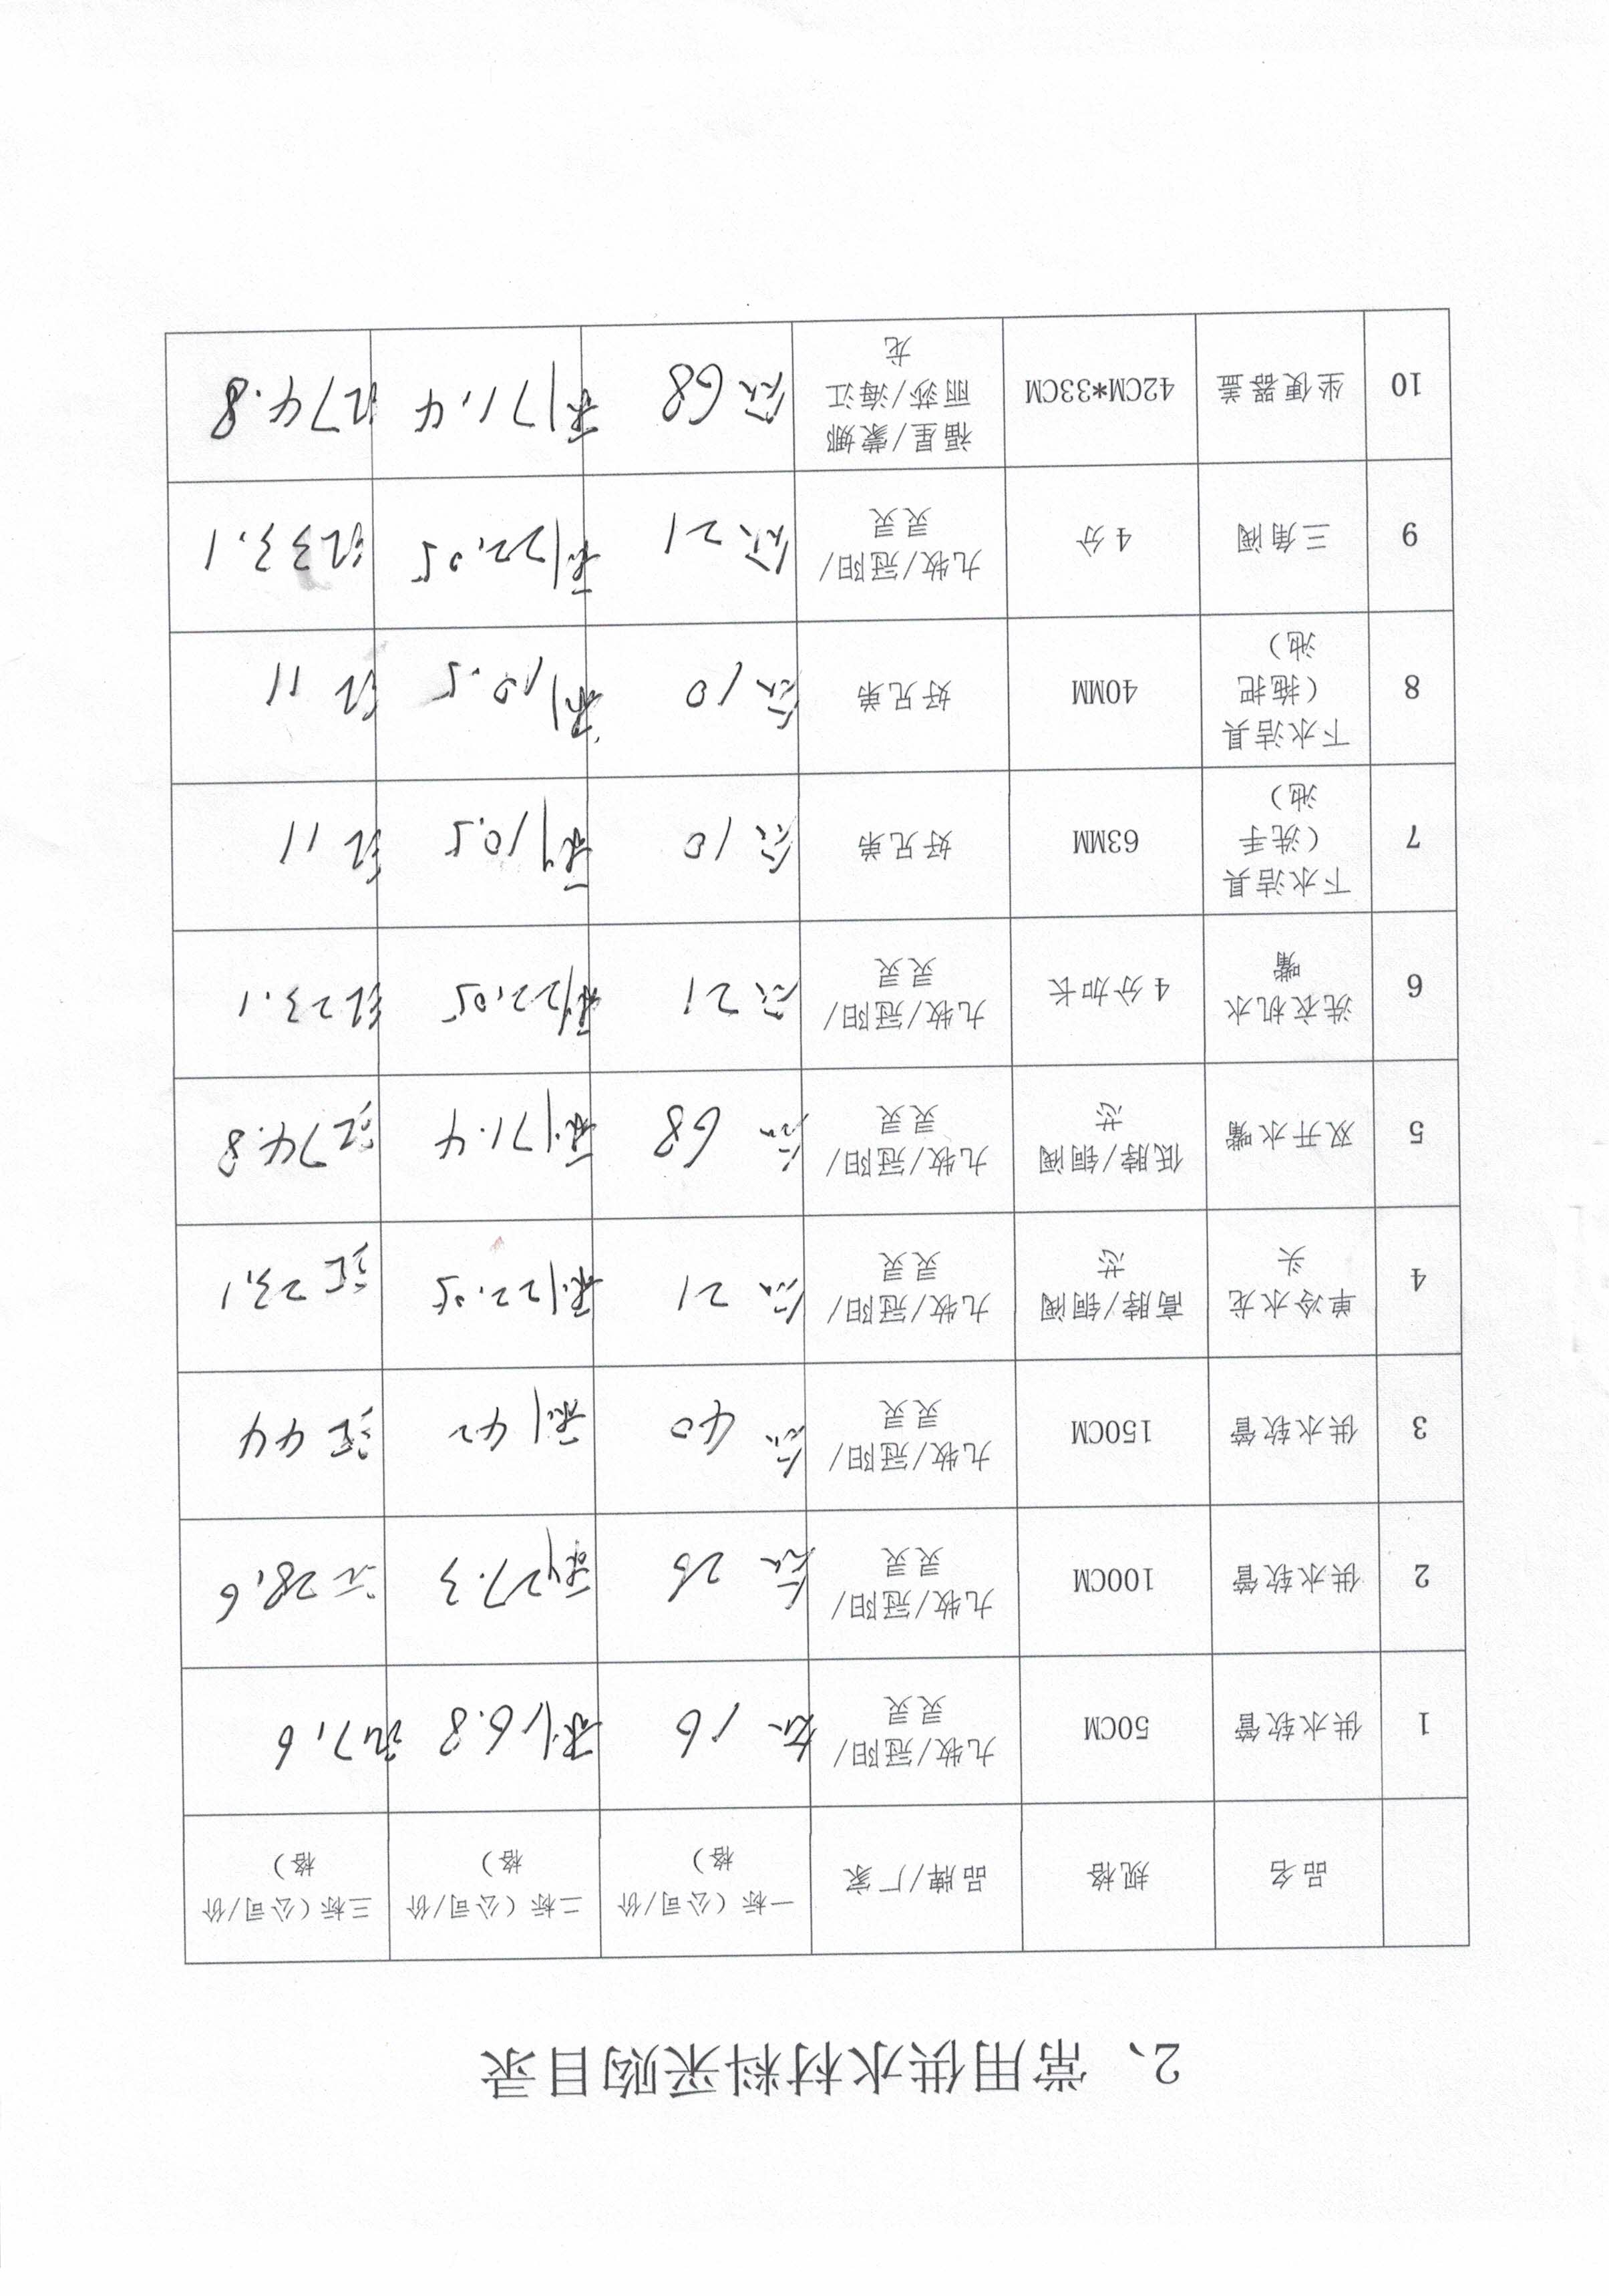 2、常用供水材料采购目录
品名
规格
品牌/厂家
一标（公司/价
格）
二标（公司/价
格）
三标（公司/价
格）
1
供水软管
50CM
九牧/冠阳/
灵灵
16
利16.8
17.6
2
供水软管
100CM
九牧/冠阳/
灵灵
26
利27.3
28.6
3
供水软管
150CM
九牧/冠阳/
灵灵
40
利42
44
4
单冷水龙
头
高脖/铜阀
芯
九牧/冠阳/
灵灵
21
利22.05
23.1
5
双开水嘴
低脖/铜阀
芯
九牧/冠阳/
灵灵
68
利71.4
74.8
6
洗衣机水
嘴
4分加长
九牧/冠阳/
灵灵
21
利22.05
23.1
7
下水洁具
（洗手
池）
63MM
好兄弟
10
利10.5
11
8
下水洁具
（拖把
池）
40MM
好兄弟
10
利10.5
11
9
三角阀
4分
九牧/冠阳/
灵灵
21
利22.05
10
坐便器盖
42CM*33CM
福星/蒙娜
丽莎/海江
龙
68
利71.4
74.8